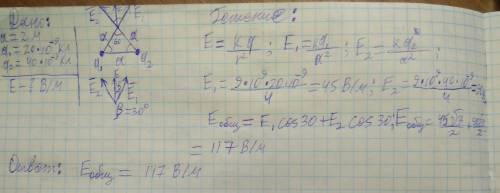 Дано:
a = 2 м
q₁ = 20·10⁻⁹ Кл
q₂ = 40·10⁻⁹ Кл
E - ? В/м
E₁
a a
60°
q₁ q₂
E
E₂ E₁
β = 30°
Решение:
E = kq/r² ; E₁ = kq₁/a² ; E₂ = kq₂/a² ;
E₁ = 9·10⁹·20·10⁻⁹/4 = 45 В/м ; E₂ = 9·10⁹·40·10⁻⁹/4 =
Eобщ = E₁ cos30 + E₂ cos30 ; Eобщ = 45√3/2 +
= 117 В/м
Ответ: Eобщ = 117 В/м